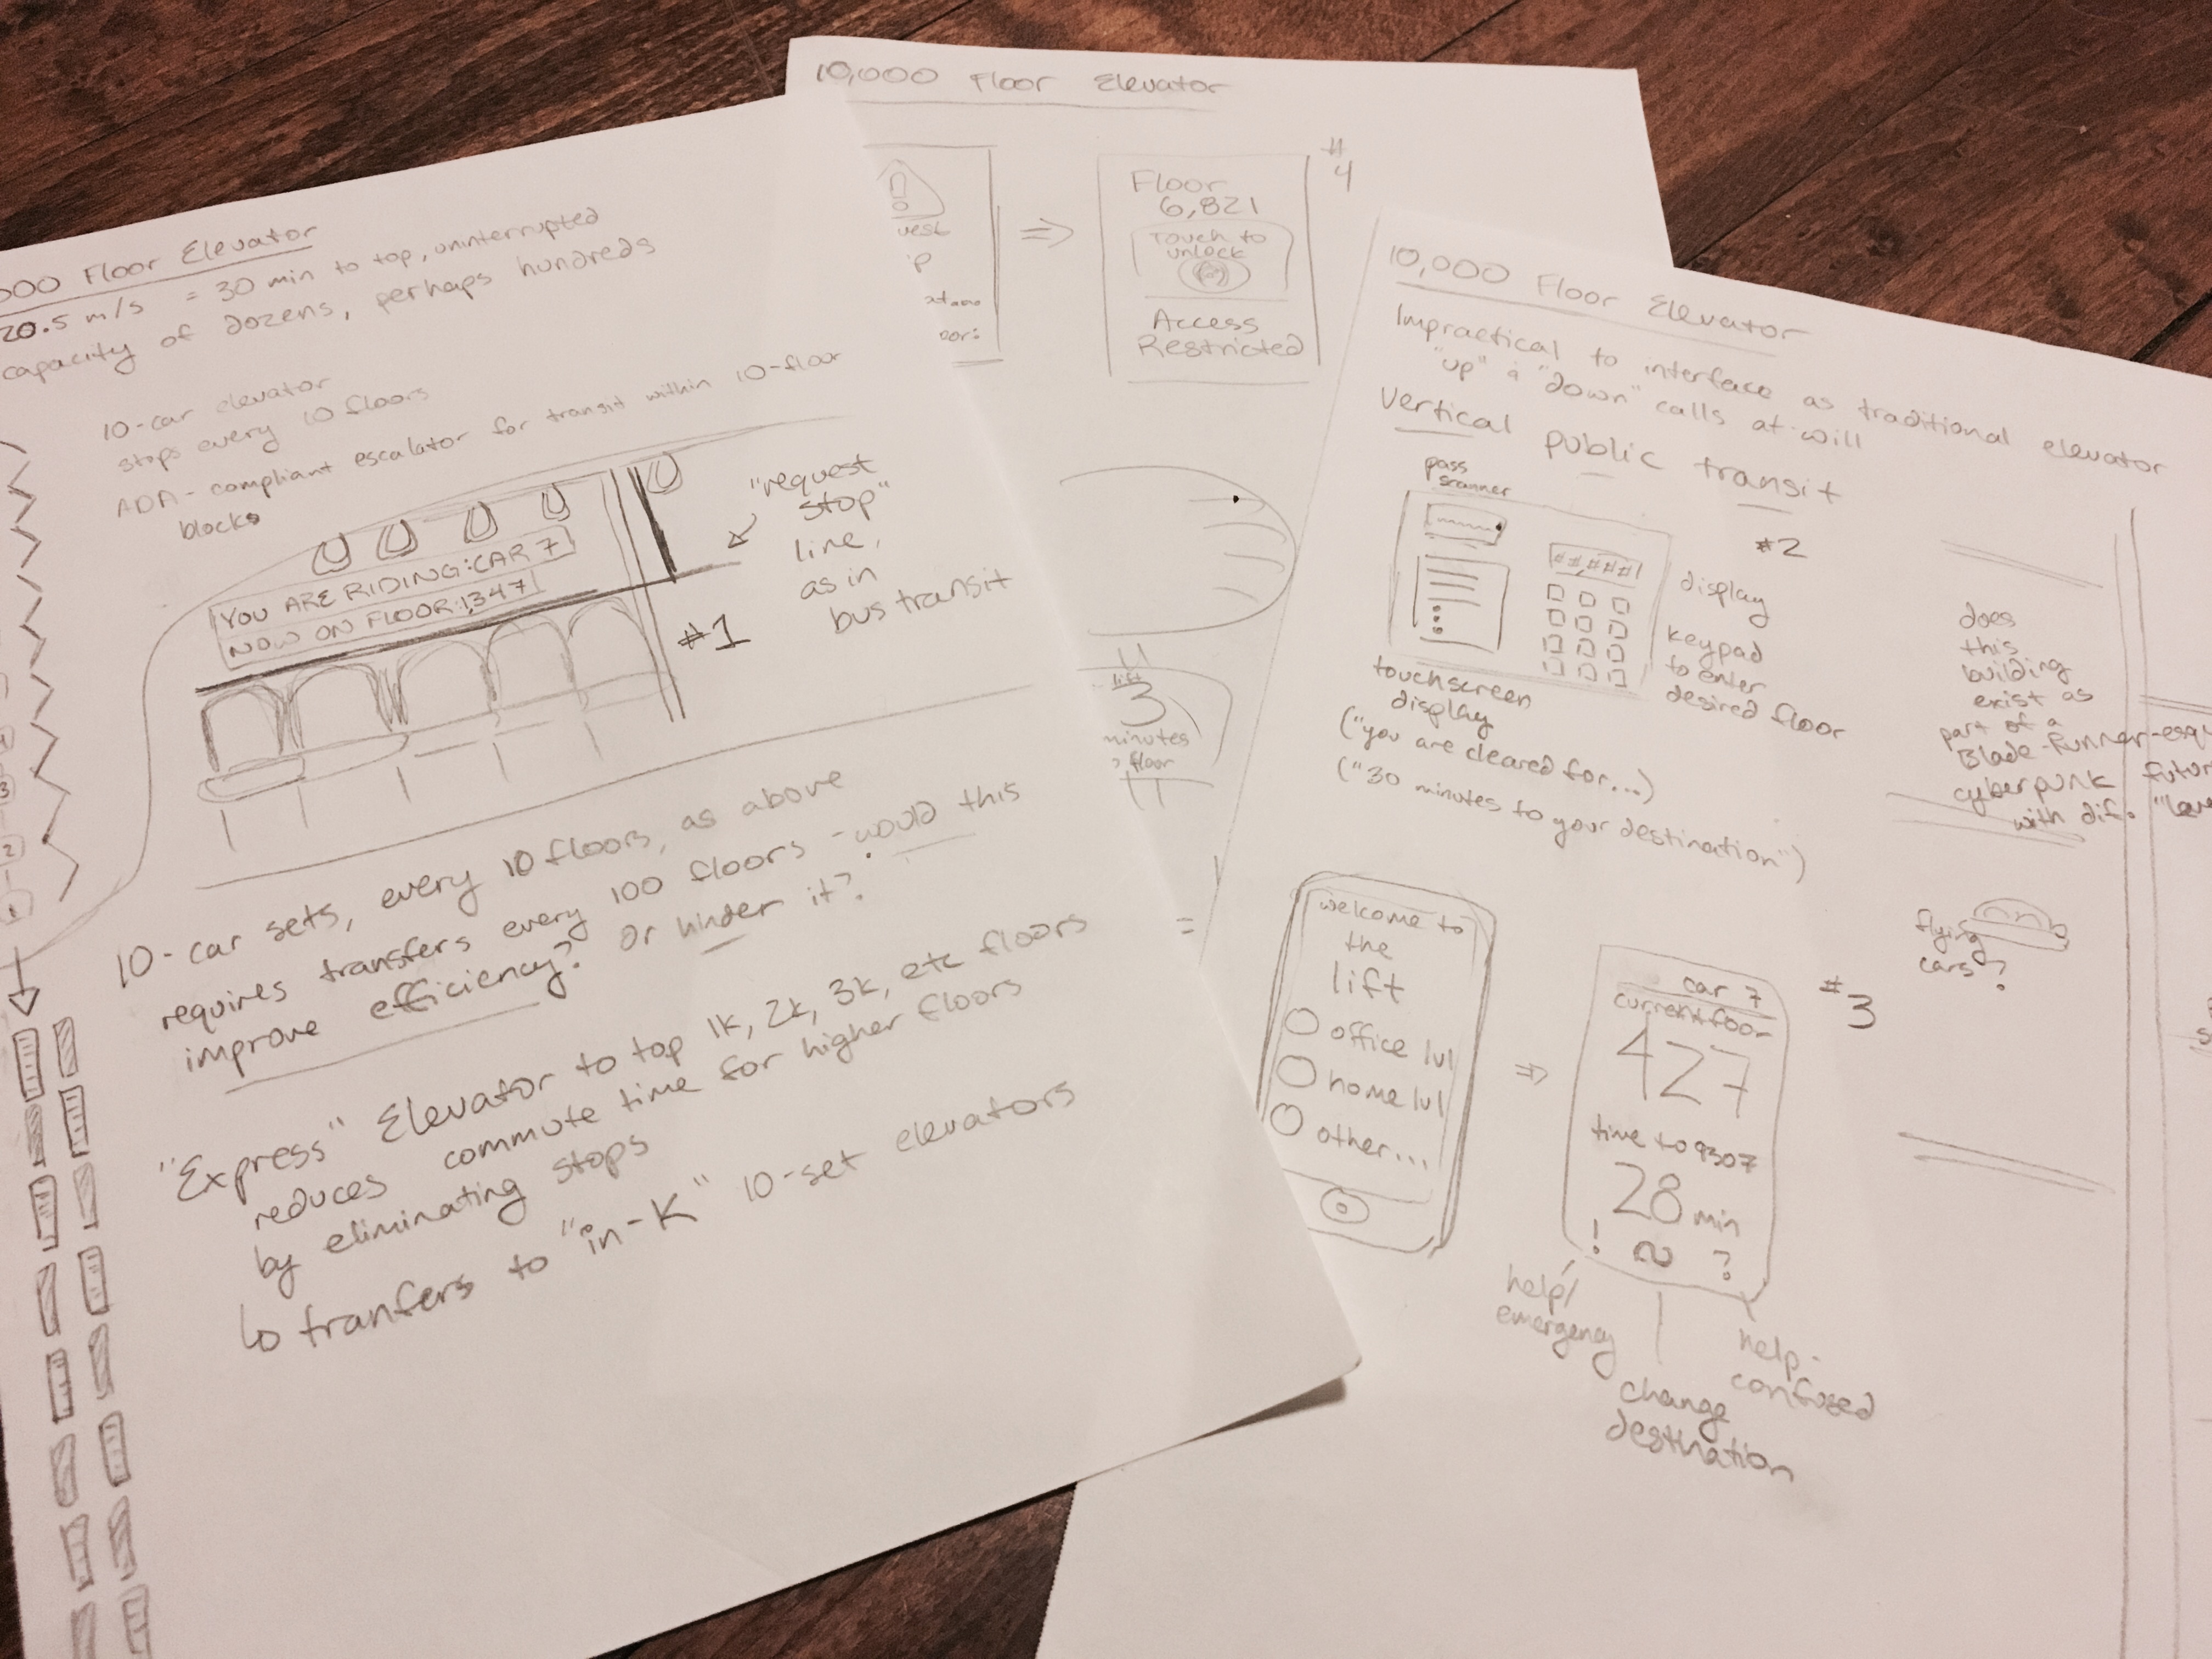 000 Floor Elevator
20.5 m/s = 30 min to top, uninterrupted
capacity of dozens, perhaps hundreds
10-car elevator
stops every 10 floors
ADA-compliant escalator for transit within 10-floor
blocks
YOU ARE RIDING:CAR 7
NOW ON FLOOR:1,347
"request
stop"
line,
as in
bus transit
#1
4
3
2
1
10-car sets, every 10 floors, as above
requires transfers every 100 floors - would this
improve efficiency? Or hinder it?
"Express" Elevator to top 1k, 2k, 3k, etc floors
reduces commute time for higher floors
by eliminating stops
tranfers to "in-K" 10-set elevators
10,000 Floor Elevator
uest
Floor
6,821
Touch to
unlock
Access
Restricted
#4
lift
3
minutes
floor
10,000 Floor Elevator
Impractical to interface as traditional elevator
"up" & "down" calls at will
Vertical public transit
pass
scanner
##,###
#2
display
keypad
to enter
desired floor
touchscreen
display
("you are cleared for...)
("30 minutes to your destination")
does
this
building
exist as
part of a
Blade-Runner-esqu
cyberpunk futur
with dif. "leve
flying
cars?
welcome to
the
lift
office lvl
home lvl
other...
=>
car 7
current floor
427
time to 9307
28 min
! ?
#3
help/
emergency
change
destination
help-
confused